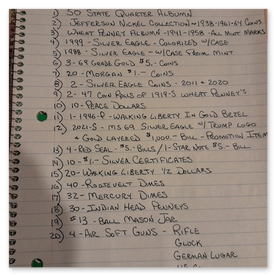 1) 50 State Quarter Albumn
2) Jefferson Nickel Collection - 1938-1961 - 64 Coins
3) Wheat Penney Albumn - 1941-1958 - All Mint Marks
4) 1999 - Silver Eagle - Colorized w/Case
5) 1988 - Silver Eagle - w/Case From Mint
6) 3 - 69 Grade Gold $5. - Coins
7) 20 - Morgan $1. - Coins
8) 2 - Silver Eagle Coins - 2011 & 2020
9) 2 - 47 Coin Rolls of 1919-S Wheat Penney's
10) 10 - Peace Dollars
11) 1 - 1946-P - Walking Liberty In Gold Bezel
12) 2021-S - MS 69 Silver Eagle w/ Trump Logo
+ Gold Layered $1,000. - Bill - Promotion Item
13) 4 - Red Seal - $5. - Bills / 1-Star Note $5. - Bill
14) 10 - $1. - Silver Certificates
15) 20 - Walking Liberty 1/2 Dollars
16) 40 - Roosevelt Dimes
17) 32 - Mercury Dimes
18) 30 - Indian Head Penneys
19) #13 - Ball Mason Jar
20) 4 - Air Soft Guns - Rifle
Glock
German Lugar